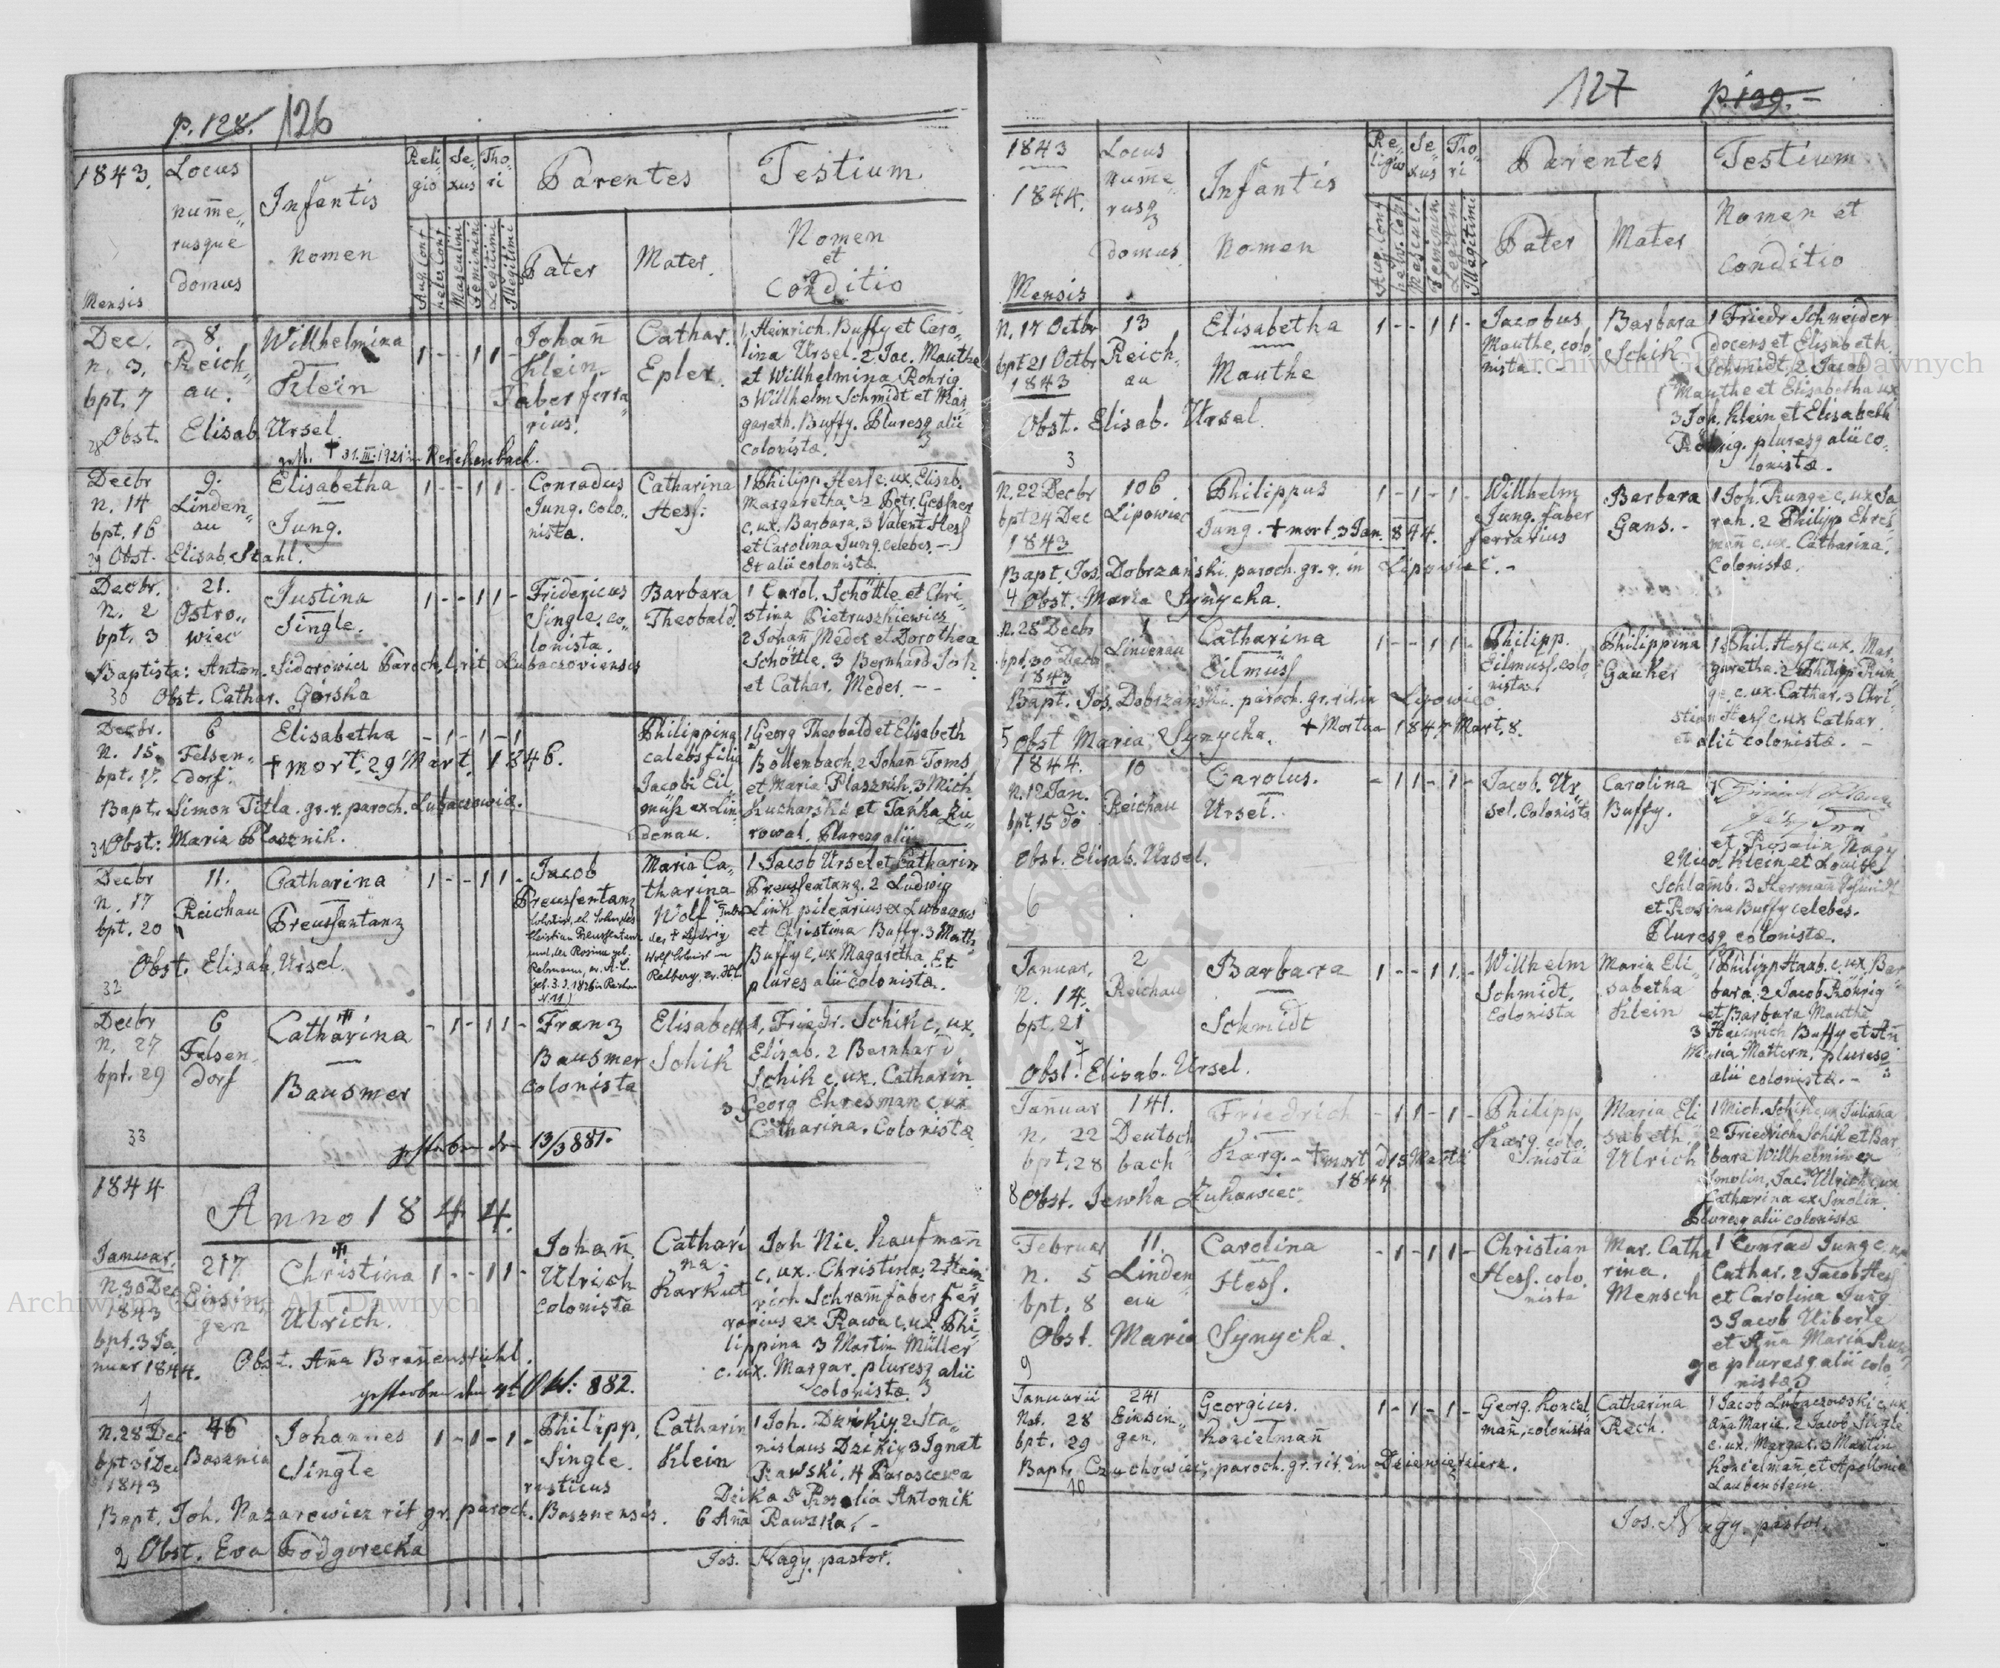 p. 128. 126
1843.
Mensis
Locus
nume-
rusque
domus
Infantis
Nomen
Reli
gio
Se-
xus
Tho-
ri
Aug. Conf.
Helv. Conf.
Masculini
Feminini
Legitimi
Illegitimi
Parentes
Pater
Mater.
Testium.
Nomen
et
Conditio
Dec.
n. 3.
bpt. 7
8.
Reich-
au.
Willhelmina
Klein
1 - - 1 1 -
Johañ
Klein.
Faber ferra-
rius.
Cathar.
Epler.
1, Heinrich. Buffy et Caro-
lina Ursel. 2 Jac. Mauthe
et Willhelmina Rohrig.
3 Willhelm Schmidt et Mar
gareth. Buffy. Pluresq alii
Colonistæ.
28 Obst. Elisab. Ursel.
gest. † 31. III. 1921 in Reichenbach.
Decbr
n. 14
bpt. 16
9.
Linden-
au
Elisabetha
Jung.
1 - - 1 1 -
Conradus
Jung. colo-
nista.
Catharina
Hess.
1 Philipp Hess c. ux. Elisab.
Margaretha. 2 Petr. Gessner
c. ux. Barbara. 3 Valent. Hess
et Carolina Jung. celebes. -
Et alii colonistæ
29 Obst. Elisab. Stahl.
Decbr.
n. 2
bpt. 3
21.
Ostro-
wiec
Justina
Single.
1 - - 1 1 -
Fridericus
Single. co-
lonista.
Barbara
Theobald.
1 Carol. Schöttle et Chri-
stina Pietruszkiewicz
2 Johañ Meder et Dorothea
Schöttle. 3 Bernhard Joh
et Cathar. Meder. - -
Baptista: Anton. Sidorowicz Paroch. l. rit. Lubaczoviensis
30 Obst. Cathar. Gorska
Decbr.
n. 15.
bpt. 17.
6
Felsen-
dorf.
Elisabetha
† mort. 29 Mart. 1846.
- 1 - 1 - 1
Philippina
calebs filia
Jacobi Eil-
müss ex Lin-
denau.
1 Georg Theobald et Elisabeth
Bollenbach. 2 Johañ Toms
et Maria Plasznik. 3 Mich
Kucharski et Jahka Ku-
rowal. Pluresq alii
Bapt. Simon Titla. gr. r. paroch. Lubaczowie.
31 Obst: Maria Plasznik.
Decbr
n. 17
bpt. 20
11.
Reichau
Catharina
Preussentanz
1 - - 1 1 -
Jacob
Preussentanz
Maria Ca-
tharina
Wolf
1 Jacob Ursel et Catharin
Preussentanz. 2 Ludwig
Link pilearius ex Lubaczow
et Christina Buffy. 3 Math
Buffy c. ux Magaretha. Et
plures alii colonistæ.
Obst. Elisab. Ursel.
32
Decbr
n. 27
bpt. 29
6
Felsen-
dorf
Catharina
Bausmer
- 1 - 1 1 -
Franz
Bausmer
Colonista
Elisabeth
Schik
1, Friedr. Schik c. ux.
Elisab. 2 Bernhard
Schik c. ux. Catharin.
3 Georg Ehresman c. ux
Catharina. Colonistæ
33
gestorben den 13/3 881.
1844
Anno 1844.
Januar.
n. 30 Dec
1843
bpt. 3 Ja
nuar 1844.
217
Einsin-
gen
Christina
Ulrich.
1 - - 1 1 -
Johañ.
Ulrich
colonista
Cathari
na.
Karkut
Joh Nic. Kaufmañ
c. ux. Christina. 2 Hein
rich Schram̄ faber fer-
rarius ex Rawa c. ux. Phi-
lippina 3 Martin Müller
c. ux. Margar. pluresq alii
colonistæ
Obst. Aña Breñenstuhl.
1
n. 28 Dec
bpt 31 Dec
1843
46
Basznia
Johannes
Single
1 - 1 - 1 -
Philipp.
Single.
rusticus
Catharin
Klein
1 Joh. Dzikiy. 2 Sta-
nislaus Dzikiy 3 Ignat
Rawski. 4 Parascewa
Dzika 5 Rosalia Antonik
6 Aña Rawska. -
Bapt. Joh. Nazarewicz rit gr. paroch. Basznensis.
2 Obst. Eva Podgorecka
Jos. Nagy. pastor.
127 p. 129. -
1843
1844.
Mensis
Locus
nume-
rusq
domus
Infantis
Nomen
Re-
ligio
Se-
xus
Tho-
ri
Parentes
Pater
Mater
Testium
Nomen et
conditio
n. 17 Octbr
bpt 21 Octbr
1843
13
Reich-
au
Elisabetha
Mauthe
1 - - 1 1 -
Jacobus
Mauthe. colo
nista
Barbara
Schik
1 Friedr Schneider
docens et Elisabeth.
Schmidt. 2 Jacob
Mauthe et Elisabetha ux
3 Joh. Klein et Elisabeth
Röhrig. pluresq alii co-
lonistæ.
Obst. Elisab. Ursel.
3
n. 22 Decbr
bpt 24 Dec
1843
106
Lipowiec
Philippus
Jung. † mort. 3 Jan. 844.
1 - 1 - 1 -
Willhelm
Jung. faber
ferrarius
Barbara
Gans. -
1 Joh. Runge c. ux Sa
rah. 2 Philipp Ehres
mañ c. ux. Catharina.
Colonistæ.
Bapt. Jos. Dobrzański. paroch. gr. r. in Lipowiec. -
4 Obst. Maria Synycka.
n. 28 Decbr
bpt. 30 Decb
1843
1
Lindenau
Catharina
Eilmüss
1 - - 1 1 -
Philipp.
Eilmuss. colo
nista.
Philippina
Gauker
1 Phil. Hess c. ux. Mar
garetha. 2 Philipp Run-
ge c. ux. Cathar. 3 Chri-
stian Hess c. ux Cathar.
et alii colonistæ. -
Bapt. Jos. Dobrzański. paroch. gr. rit. in Lipowiec
5 Obst Maria Synycka. † Mortua 1844 Mart. 8.
1844.
n. 12 Jan.
bpt. 15 do
10
Reichau
Carolus.
Ursel.
- 1 1 - 1 -
Jacob. Ur-
sel. Colonista
Carolina
Buffy.
et Rosalia Nagy
2 Nicol Klein et Louise
Schlamb. 3 Herman Schmidt
et Rosina Buffy celebes.
Pluresq colonistæ.
Obst. Elisab. Ursel.
6
Januar.
n. 14.
bpt. 21
2
Reichau
Barbara
Schmidt
1 - - 1 1. -
Willhelm
Schmidt.
Colonista
Maria Eli-
sabetha
Klein
1 Philipp Haab. c. ux. Bar-
bara. 2 Jacob Röhrig
et Barbara Mauthe
3 Heinrich Buffy et Añ
Maria Mattern. pluresq
alii colonistæ. -
7
Obst. Elisab. Ursel.
Januar
n. 22
bpt. 28
141.
Deutsch
bach
Friedrich
Kärg. - † mort d 15 Martii
1844
- 1 1 - 1 -
Philipp
Kærg. colo.
nista
Maria Eli
sabeth.
Ulrich
1 Mich. Schik c. ux Juliaña
2 Friedrich Schik et Bar
bara Willhelmin ex
Smolin. Jac. Ulrich c. ux
Catharina ex Smolin.
Pluresq alii colonistæ
8 Obst. Jewka Zukowiec.
Februar
n. 5
bpt. 8
11.
Linden
au
Carolina
Hess.
- 1 - 1 1 -
Christian
Hess. colo.
nista
Mar. Catha
rina.
Mensch
1 Conrad Jung c. ux
Cathar. 2 Jacob Hess
et Carolina Jung
3 Jacob Uiberle
et Aña Maria Run
ge pluresq alii colo
nistæ
Obst. Maria Synycka.
9
Januarii
Nat. 28
bpt. 29
241
Einsin-
gen.
Georgius.
Konzielmañ
1 - 1 - 1 -
Georg. Konzel
mañ, colonista
Catharina
Rech.
1 Jacob Lubaczowski c. ux.
Aña Maria. 2 Jacob Single
c. ux. Margar. 3 Martin
Konzielmañ, et Apollonia
Laubenstein.
Bapt. Czuchowicz. paroch. gr. rit. in Dziewięcierz.
10
Jos. Nagy. pastor.